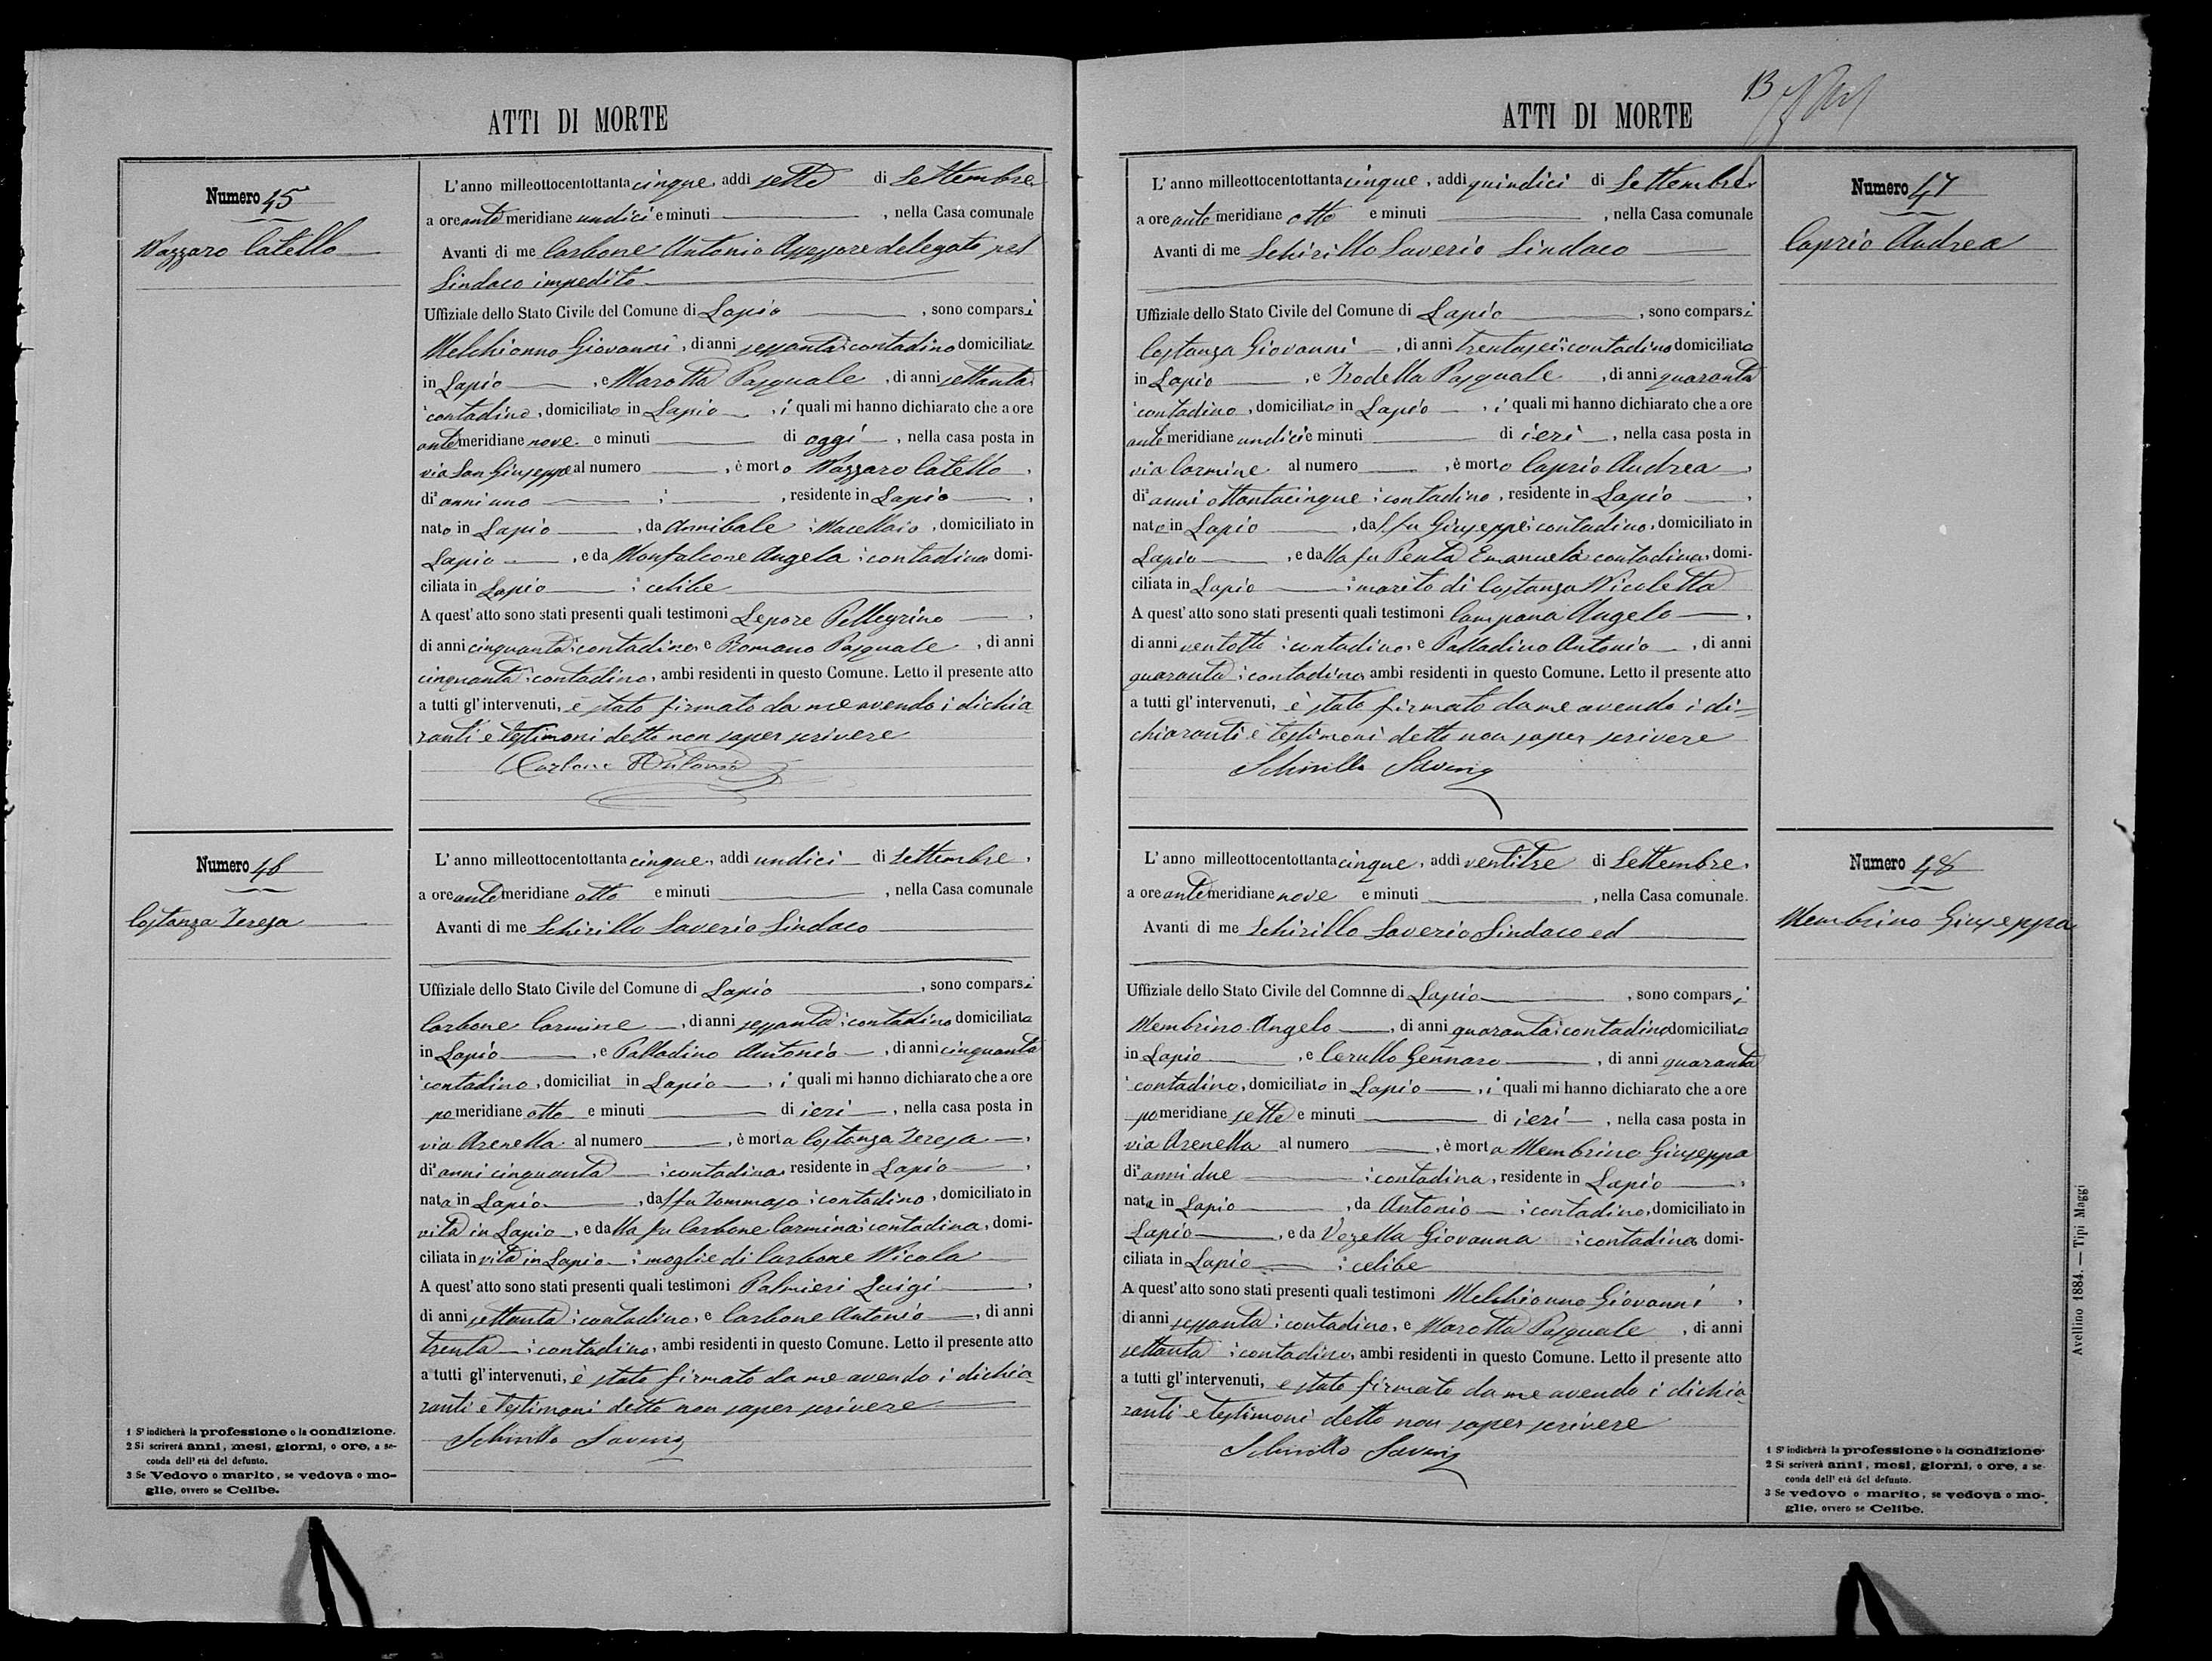 ATTI DI MORTE
Numero 45
Nazzaro Catello
L'anno milleottocentottantacinque, addi sette di Settembre
a ore ante meridiane undici e minuti , nella Casa comunale
Avanti di me Carbone Antonio Assessore delegato pel
Sindaco impedito
Uffiziale dello Stato Civile del Comune di Lapio , sono comparsi
Melchionno Giovanni, di anni sessanta contadino domiciliato
in Lapio , e Marotta Pasquale , di anni settanta
contadino, domiciliato in Lapio , i quali mi hanno dichiarato che a ore
ante meridiane nove e minuti di oggi , nella casa posta in
via San Giuseppe al numero , è morto Nazzaro Catello ,
di anni uno ; , residente in Lapio ,
nato in Lapio , da Annibale ; Macellaio , domiciliato in
Lapio , e da Monfalcone Angela ; contadina domi-
ciliata in Lapio ; celibe
A quest'atto sono stati presenti quali testimoni Lepore Pellegrino ,
di anni cinquanta ; contadino, e Romano Pasquale , di anni
cinquanta ; contadino, ambi residenti in questo Comune. Letto il presente atto
a tutti gl'intervenuti, è stato firmato da me avendo i dichia-
ranti e testimoni detto non saper scrivere
Carbone Antonio
Numero 46
Costanza Teresa
L'anno milleottocentottantacinque, addi undici di Settembre,
a ore ante meridiane otto e minuti , nella Casa comunale
Avanti di me Schirillo Saverio Sindaco
Uffiziale dello Stato Civile del Comune di Lapio , sono comparsi
Carbone Carmine , di anni sessanta ; contadino domiciliato
in Lapio , e Palladino Antonio , di anni cinquanta
contadino, domiciliat in Lapio , i quali mi hanno dichiarato che a ore
pomeridiane otto e minuti di ieri , nella casa posta in
via Arenella al numero , è morta Costanza Teresa ,
di anni cinquanta ; contadina, residente in Lapio ,
nata in Lapio , dal fu Tommaso ; contadino, domiciliato in
vita in Lapio , e dalla fu Carbone Carmina ; contadina, domi-
ciliata in vita in Lapio ; moglie di Carbone Nicola
A quest'atto sono stati presenti quali testimoni Palmieri Luigi ,
di anni settanta ; contadino, e Carbone Antonio , di anni
trenta ; contadino, ambi residenti in questo Comune. Letto il presente atto
a tutti gl'intervenuti, è stato firmato da me avendo i dichia-
ranti e testimoni detto non saper scrivere
Schirillo Saverio
1 S'indicherà la professione o la condizione.
2 Si scriverà anni, mesi, giorni, o ore, a se-
conda dell'età del defunto.
3 Se Vedovo o marito, se vedova o mo-
glie, ovvero se Celibe.
ATTI DI MORTE
13
Numero 47
Caprio Andrea
L'anno milleottocentottantacinque, addi quindici di Settembre
a ore ante meridiane otto e minuti , nella Casa comunale
Avanti di me Schirillo Saverio Sindaco
Uffiziale dello Stato Civile del Comune di Lapio , sono comparsi
Costanza Giovanni , di anni trentasei ; contadino domiciliato
in Lapio , e Trodella Pasquale , di anni quaranta
contadino, domiciliato in Lapio , i quali mi hanno dichiarato che a ore
ante meridiane undici e minuti di ieri , nella casa posta in
via Carmine al numero , è morto Caprio Andrea ,
di anni ottantacinque ; contadino, residente in Lapio ,
nato in Lapio , dal fu Giuseppe ; contadino, domiciliato in
Lapio , e dalla fu Penta Emanuela contadina, domi-
ciliata in Lapio ; marito di Costanza Nicoletta
A quest'atto sono stati presenti quali testimoni Campana Angelo ,
di anni ventotto ; contadino, e Palladino Antonio , di anni
quaranta ; contadino, ambi residenti in questo Comune. Letto il presente atto
a tutti gl'intervenuti, è stato firmato da me avendo i di-
chiaranti e testimoni detto non saper scrivere
Schirillo Saverio
Numero 48
Membrino Giuseppa
L'anno milleottocentottantacinque, addi ventitre di Settembre.
a ore ante meridiane nove e minuti , nella Casa comunale.
Avanti di me Schirillo Saverio Sindaco ed
Uffiziale dello Stato Civile del Comnne di Lapio , sono comparsi
Membrino Angelo , di anni quaranta ; contadino domiciliato
in Lapio , e Cerullo Gennaro , di anni quaranta
contadino, domiciliato in Lapio , i quali mi hanno dichiarato che a ore
pomeridiane sette e minuti di ieri , nella casa posta in
via Arenella al numero , è morta Membrino Giuseppa
di anni due ; contadina, residente in Lapio ,
nata in Lapio , da Antonio ; contadino, domiciliato in
Lapio , e da Vozella Giovanna ; contadina domi-
ciliata in Lapio ; celibe
A quest'atto sono stati presenti quali testimoni Melchionno Giovanni ,
di anni sessanta ; contadino, e Marotta Pasquale , di anni
settanta ; contadino, ambi residenti in questo Comune. Letto il presente atto
a tutti gl'intervenuti, è stato firmato da me avendo i dichia-
ranti e testimoni detto non saper scrivere
Schirillo Saverio
1 S'indicherà la professione o la condizione
2 Si scriverà anni, mesi, giorni, o ore, a se-
conda dell'età del defunto.
3 Se vedovo o marito, se vedova o mo-
glie, ovvero se Celibe.
Avellino 1884. — Tipi Maggi